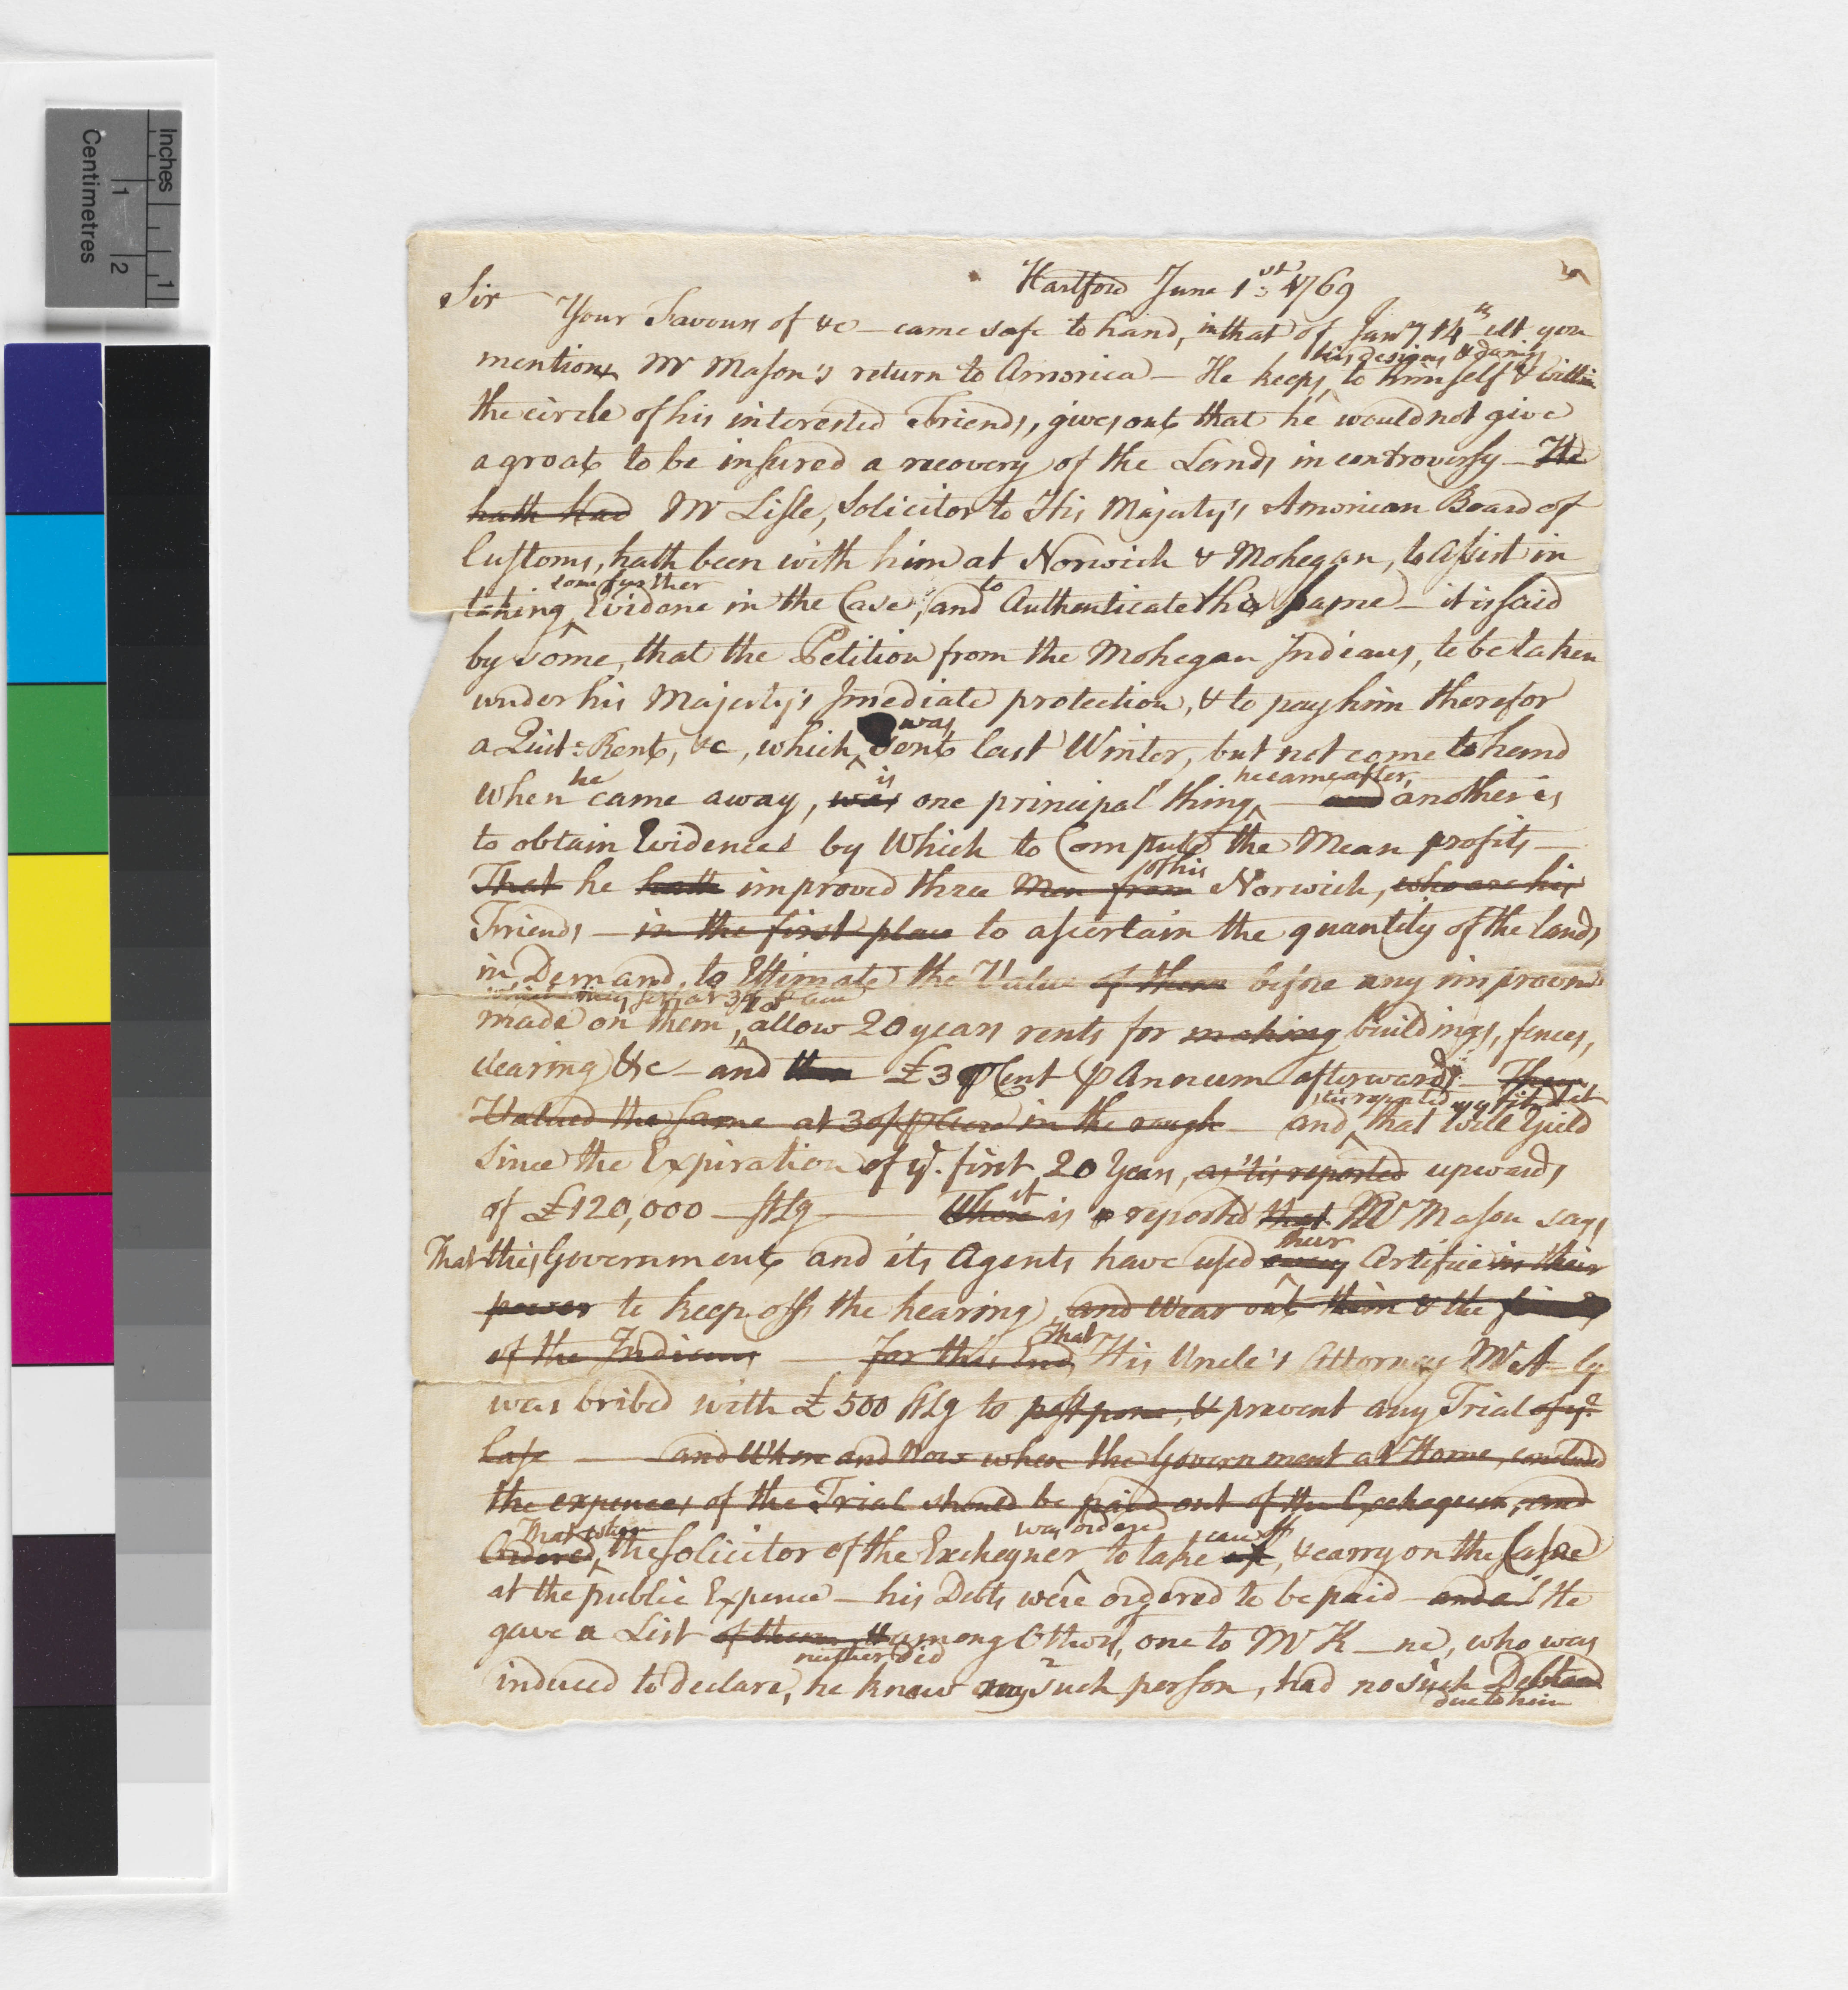 Inches
1
1
Centimetres
1
2
Hartford June 1st 1769
Sir Your Favours of &c — came safe to hand, in that of Janry 14th ult you
mention Mr Mason's return to America — He keeps his designs & doings to himself & within
the circle of his interested Friends, gives out that he would not give
a groat to be insured a recovery of the Lands in controversy — He
hath had Mr Lisle, Solicitor to His Majesty's American Board of
Customs, hath been with him at Norwich & Mohegan, to assist in
taking some further Evidence in the Case, and to Authenticate the same — it is said
by some, that the Petition from the Mohegan Indians, to be taken
under his Majesty's Imediate protection, & to pay him therefor
a Quit-Rent, &c, which was sent last Winter, but not come to hand
when he came away, was is one principal thing he came after, — and another is
to obtain Evidences by Which to Compute the Mean profits —
That he hath improved three Men from of his Norwich, who are his
Friends — in the first place to ascertain the quantity of the lands
in Demand, to Estimate the Value of them before any improvmt
made on them, allow 20 years rents for making buildings, fences,
clearing &c — and then £3 ℘ Cent ℘ Annum afterwards —
Valued the same at 3 in the rough — and, 'tis reported that will yield
Since the Expiration of ye. first 20 Years, as 'tis reported upwards
of £120,000 — stlg — it is reported that Mr Mason says
That this Government and its Agents have used every their Artifice in their
power to keep off the hearing and wear out them & the
of the Indians — for this End That His Uncle's Attorney Mr A–ly
was bribed with £500 stlg to postpone, & prevent any Trial of ye
Case — and When and Now when the Government at Home, concluded
the expences of the Trial should be paid out of the Exchequer, and
Ordered That when the Solicitor of the Exchequer was ordered to take up, & carry on the Cause
at the public Expence — his Debts were ordered to be paid — and as He
gave a List of them & among Others, one to Mr K–ne, who was
induced to declare, he neither did know any such person, had no such Debt due to him